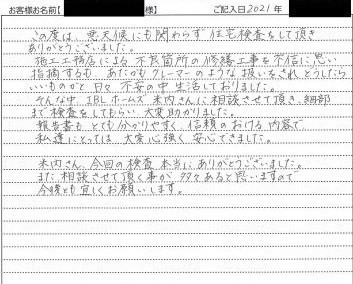 お客様お名前【 様】 ご記入日2021年
この度は、悪天候にも関わらず 住宅検査をして頂き
ありがとうございました。
施工工務店による 不良箇所の修繕工事を不信に思い
指摘するも、あたかもクレーマーのような扱いをされ、どうしたら
いいものかと 日々 不安の中 生活しておりました。
そんな中、IBLホームズ 米内さんに相談させて頂き、細部
まで検査をしてもらい 大変助かりました。
報告書も とても分かりやすく、信頼のおける内容で
私達にとっては 大変心強く 安心できました。
米内さん、今回の検査 本当にありがとうございました。
また 相談させて頂く事が 多々あると思いますので
今後とも宜しくお願いします。